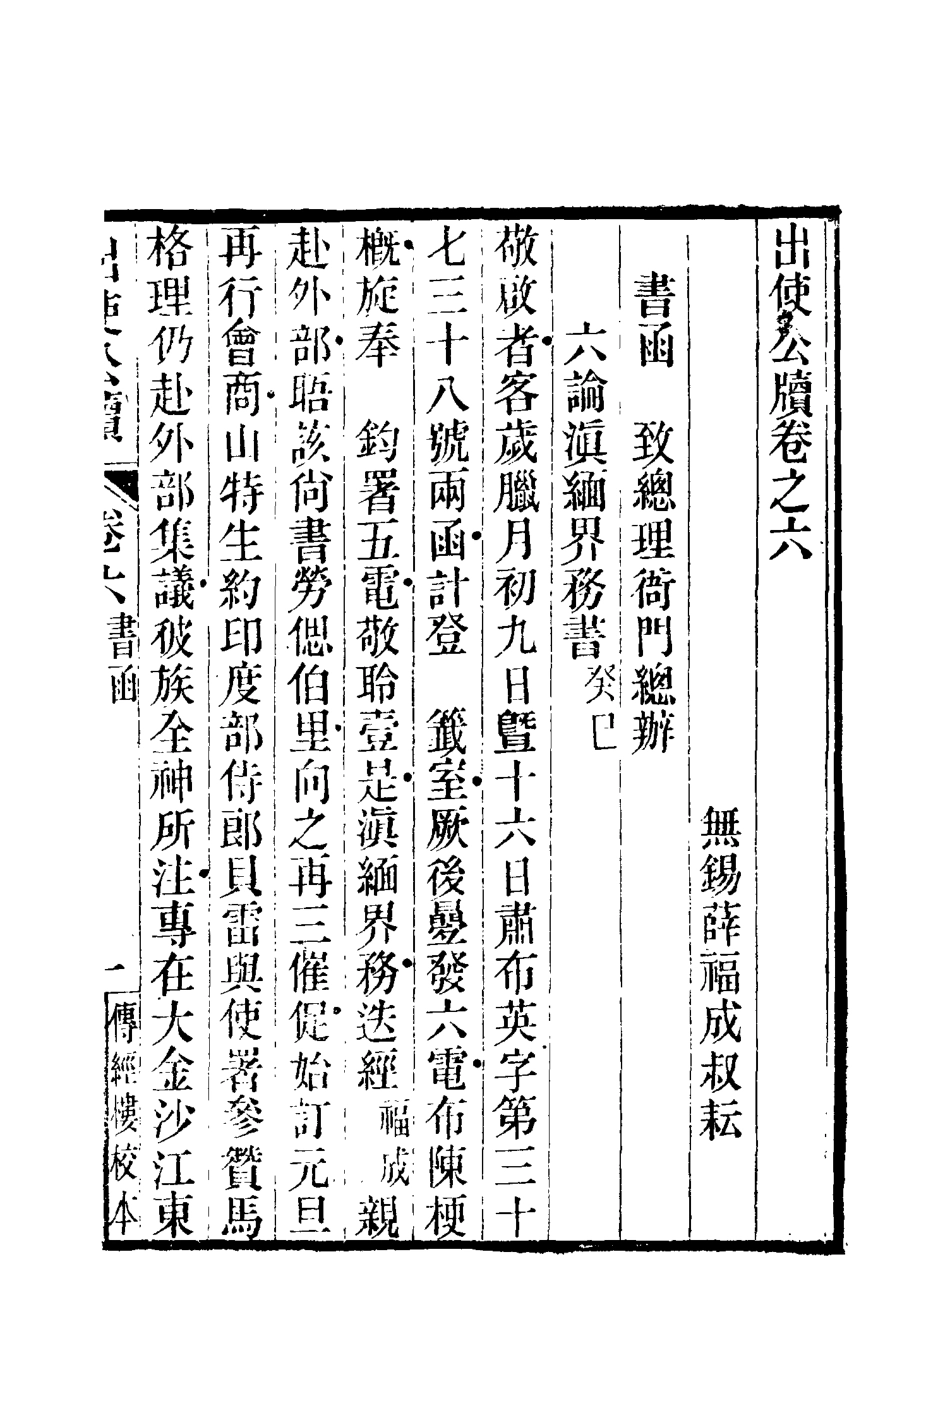 出使公牘卷之六
無錫薛福成叔耘
書函　致總理衙門總辦
六論滇緬界務書 癸巳
敬啟者客歲臘月初九日曁十六日肅布英字第三十
七三十八號兩函計登　籤室厥後疊發六電布陳梗
概旋奉　鈞署五電敬聆壹是滇緬界務迭經福成親
赴外部晤該尙書勞偲伯里向之再三催促始訂元旦
再行會商山特生約印度部侍郎貝雷與使署參贊馬
格理仍赴外部集議彼族全神所注專在大金沙江東
出使公牘　卷六　書函　一　傳經樓校本